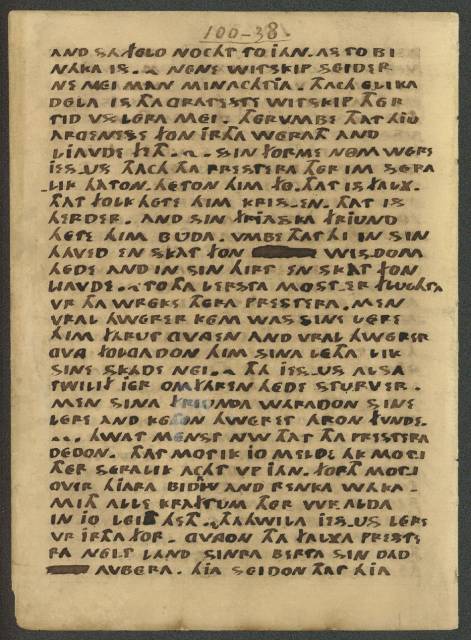 100-38
AND SA FELO NOCHT TO IAN. AS TO BI
NAKA IS. ~ NENE WITSKIP SEIDER
NE MEI MAN MINACHTIA. TACH ELIKA
DELA IS THA GRATESTE WITSKIP THER
TID VS LERA MEI. THERVMBE THAT HIV
ARGENESSE FON IRTHA WERATH AND
LIAVDE FETH. ~. SIN FORME NOM WERE
IES.US TACH THA PRESTERA THER IM SERA
LIK HATON. HETON HIM FO. THAT IS FALX.
THAT FOLK HETE HIM KRIS.EN. THAT IS
HERDER. AND SIN FRIASKA FRIUND
HETE HIM BUDA. VMBE THAT HI IN SIN
HAVED EN SKAT FON WISDOM
HEDE AND IN SIN HIRT EN SKAT FON
LIAVDE. ~ TO THA LERSTA MOST.ER FLUCHTA
VR THA WREKE THERA PRESTERA. MEN
VRAL HWERER KEM WAS SINE LERE
HIM FARUT GVNGEN AND VRAL HWERER
GVNG FOLGADON HIM SINA LETHA LIK
SINE SKADE NEI. ~ THA IES.US ALSA
TWILIF IER OMFAREN HEDE STURVER.
MEN SINA FRIUNDA WARADON SINE
LERE AND KETHON HWERET HRON FUNDE.
~. HWAT MENST NW THAT THA PRESTERA
DEDON. THAT MOT IK IO MELDE AK MOTI
THER SERALIK ACHT VP IAN. FORTH MOTI
OVIR HIARA BIDRIV AND RENKA WAKA.
MITH ALLE KRAFTUM THER WR.ALDA
IN IO LEID HETH. ~ THAHWILA IES.US LERE
VR IRTHA FOR. GVNGON THA FALXA PRESTE
RA NEIT LAND SINRA BERTA SIN DAD
AVBERA. HIA SEIDON THAT HIA